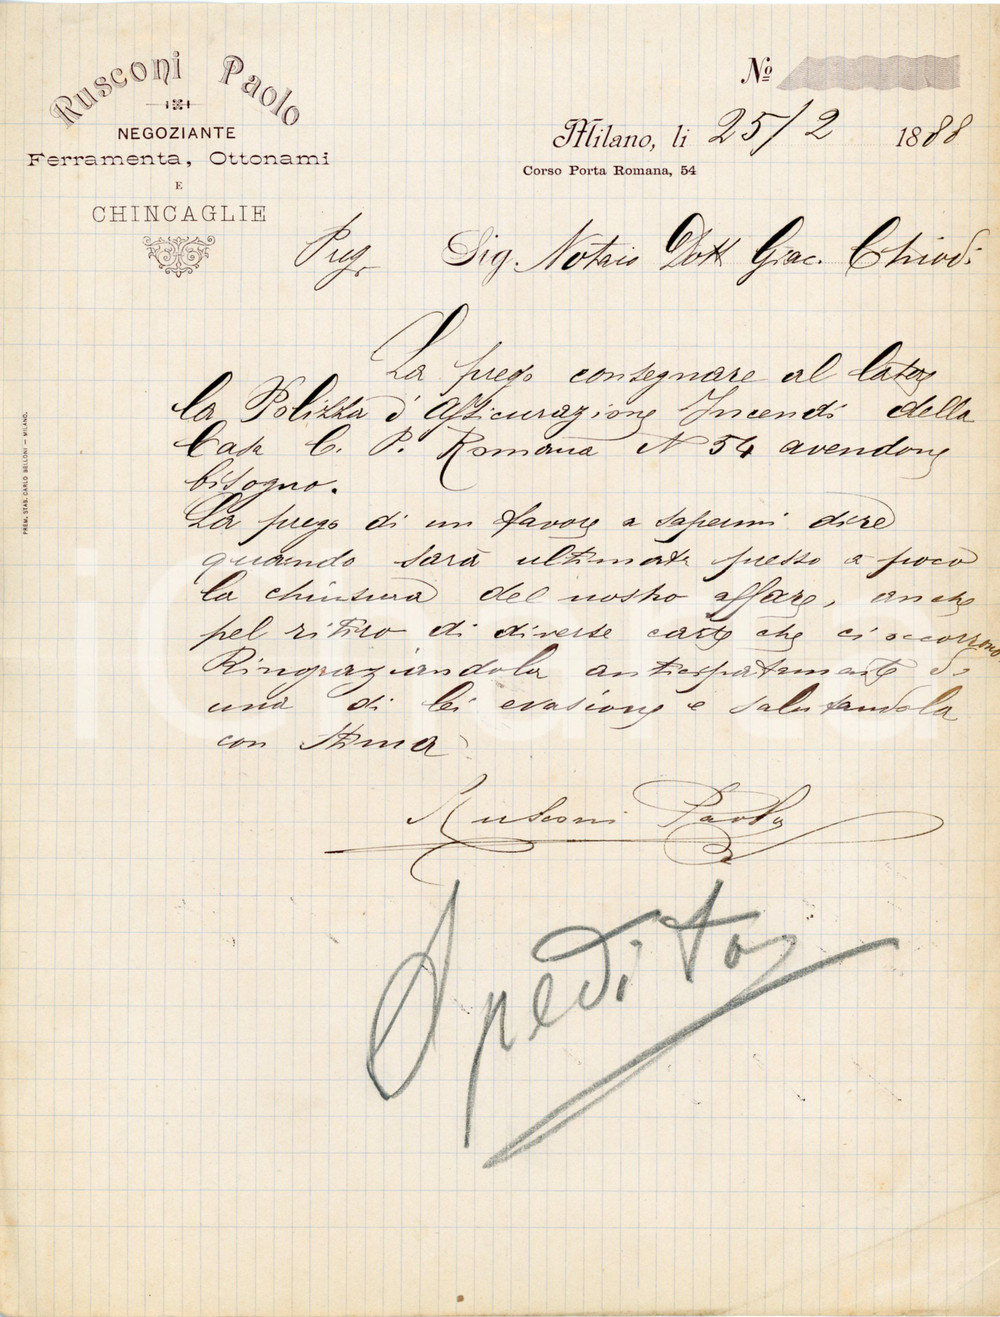 Rusconi Paolo
NEGOZIANTE
Ferramenta, Ottonami
E
CHINCAGLIE
Nº
Milano, li 25/2 1888
Corso Porta Romana, 54
Preg. Sig. Notaio Dott Giac. Chiodi
La prego consegnare al latore
la Polizza d'Assicurazione Incendi della
Casa C. P. Romana N 54 avendone
bisogno.
La prego di un favore a sapermi dire
quando sarà ultimata presso a poco
la chiusura del nostro affare, anche
pel ritiro di diverse carte che ci occorrono
Ringraziandola anticipatamente di
una di lei evasione e salutandola
con stima
Rusconi Paolo
Spedito
PREM. STAB. CARLO BELLONI — MILANO.